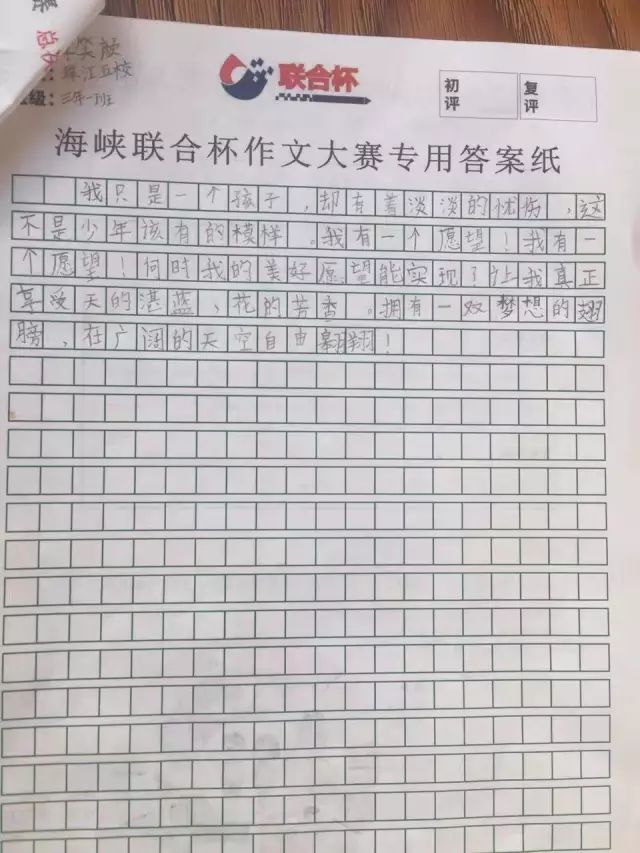 笑颜
珠江五校
级：三年一班
联合杯
初评
复评
海峡联合杯作文大赛专用答案纸
我只是一个孩子，却有着淡淡的忧伤，这
不是少年该有的模样。我有一个愿望！我有一
个愿望！何时我的美好愿望能实现了让我真正
享受天的湛蓝，花的芳香。拥有一双梦想的翅
膀，在广阔的天空自由翱翔！